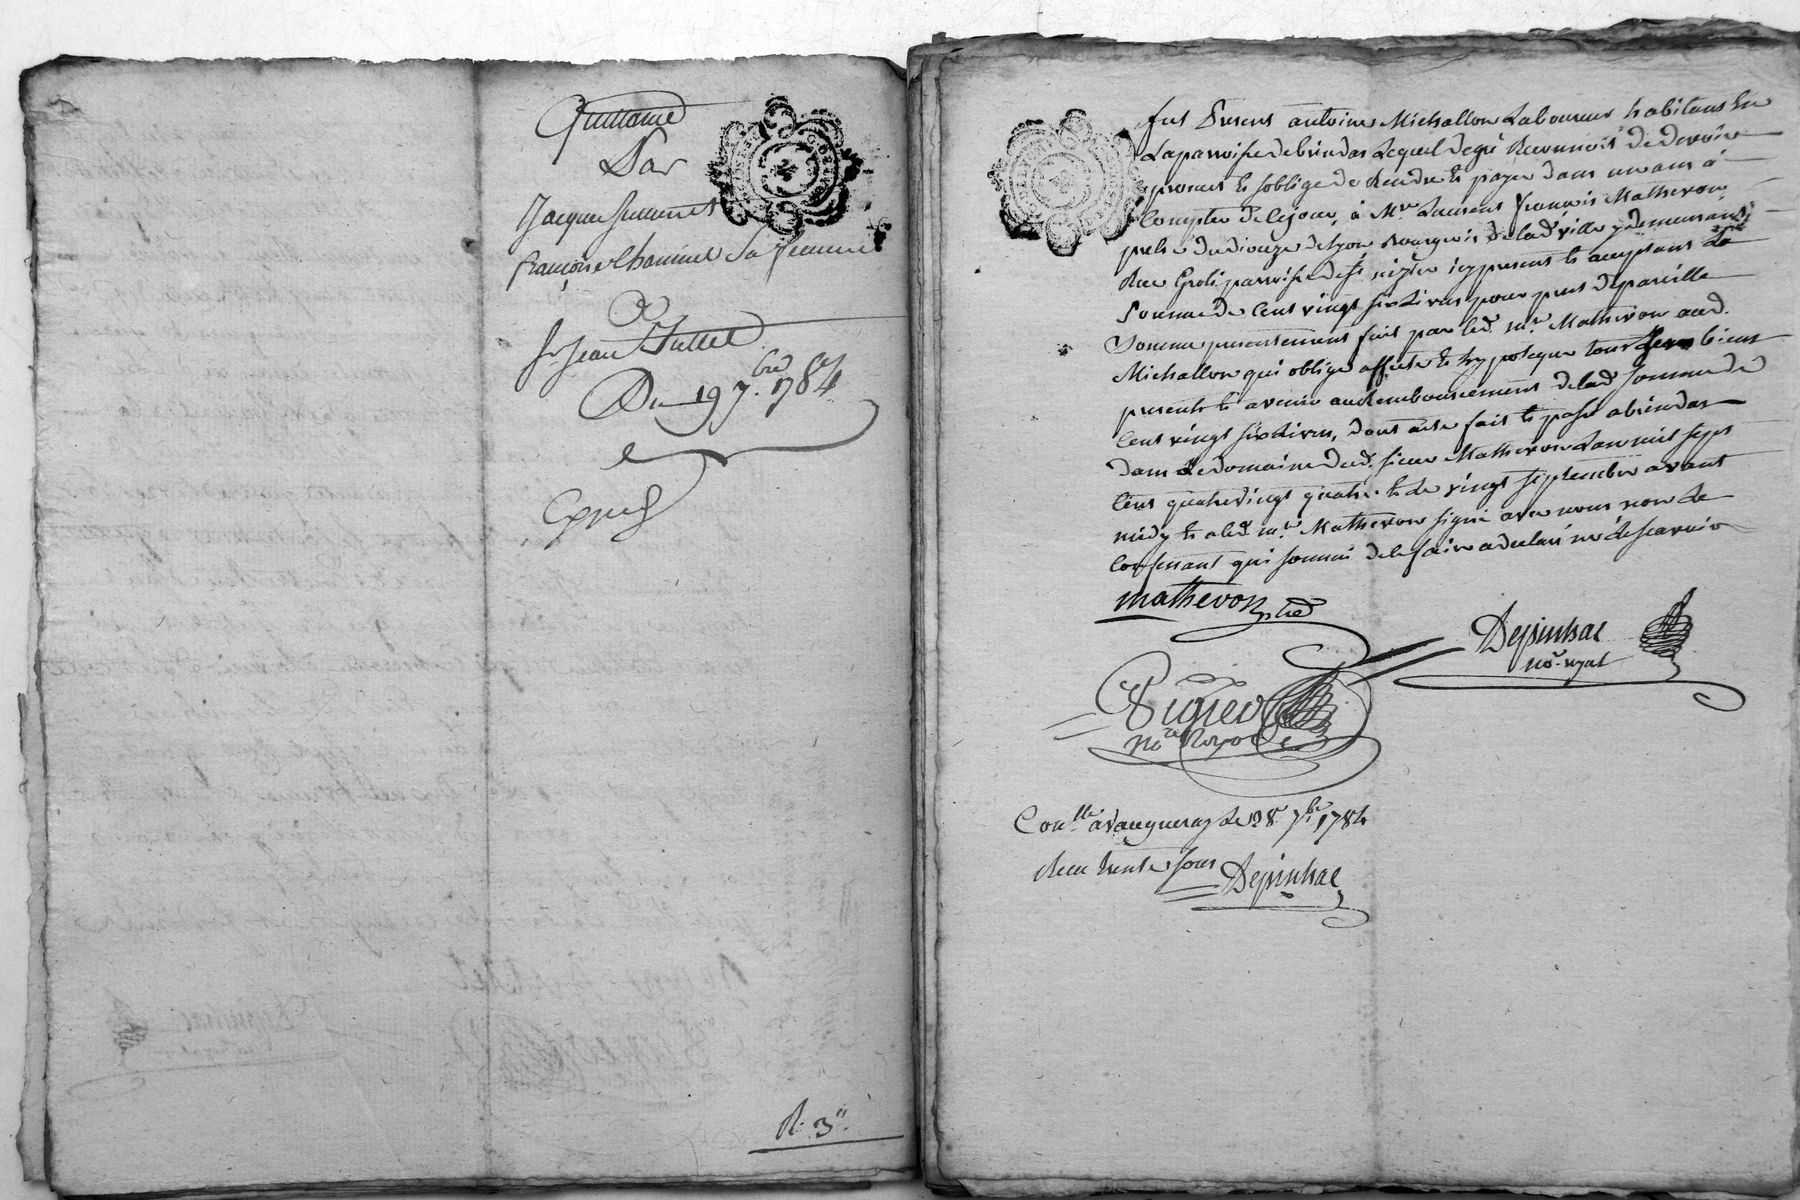 Quittance
Par
Jacque
françoise Chominel Sa femme
a
Sr Jean
Du 19 7.bre 1784
Exped
R. 3"
fut Présent antoine Michallon Laboureur habitant En
La parroisse de brindas Lequel de gré Reconnoit de devoir
promet et soblige de Rendre et payer dans un an à
Compter de Ce jour, à Mre. Laurent françois Mathevon
pretre du dioceze de Lyon Bourgeois de lad ville y demeurant
Rue Groli parroisse de st nizier icy present et acceptant La
Somme de Cent vingt six Livres pour pret de pareille
Somme presentement fait par led. mr. Mathevon aud.
Michallon qui oblige affecte et hypoteque tous ses biens
presents et avenir au Remboursement de lad Somme de
Cent vingt six Livres, dont acte fait et passé a brindas
dans Le domaine dud. sieur Mathevon Lan mil sept
Cent quatre vingt quatre et Le vingt septembre avant
midy et a led. mr. Mathevon signé avec nous non le
Confessant qui sommé de le faire a declaré ne le scavoir
mathevon ptre
Depinhac
nore royal
nore Royal
Conlle. a vaugneray Le 28 7bre 1784
Recu trente sous
Depinhac